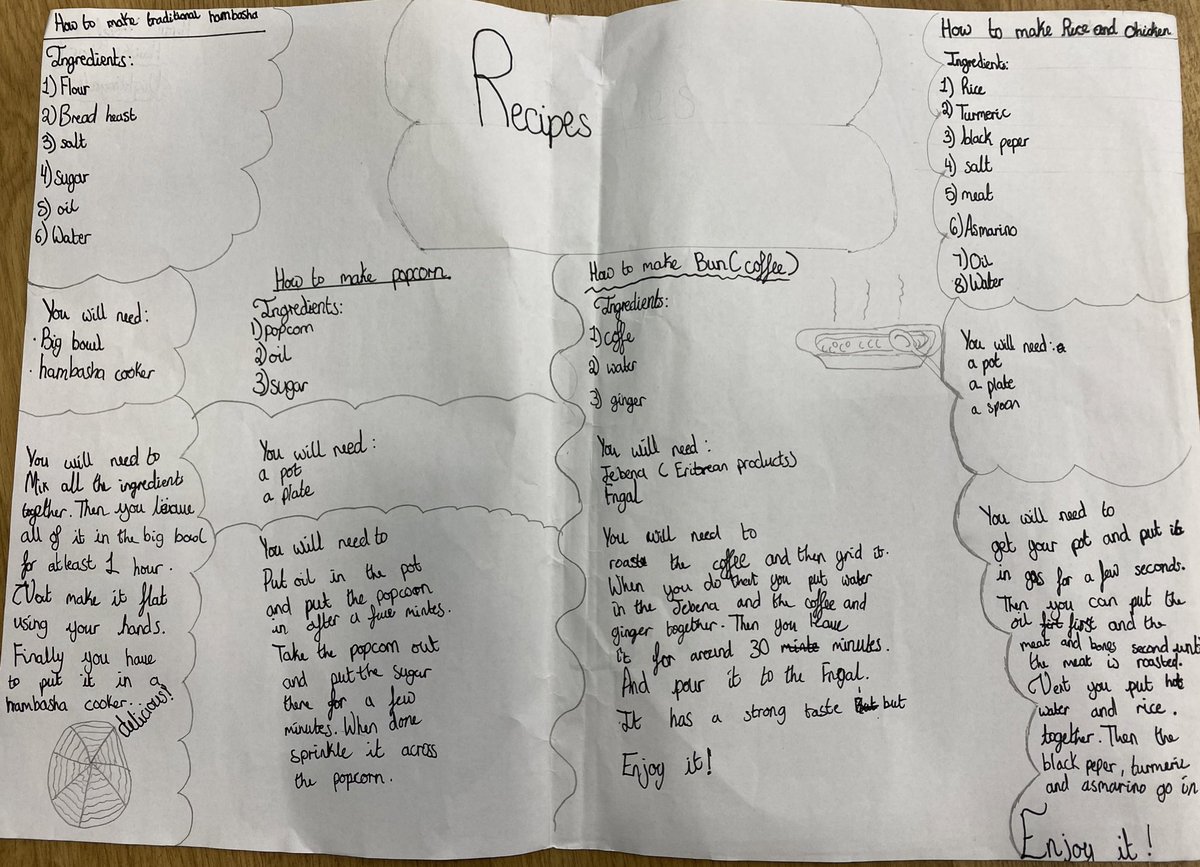 Recipes
How to make traditional hambasha
Ingredients:
1) Flour
2) Bread heast
3) salt
4) sugar
5) oil
6) Water
You will need:
· Big bowl
· hambasha cooker
You will need to
Mix all the ingredients
together. Then you leave
all of it in the big bowl
for atleast 1 hour.
Next make it flat
using your hands.
Finally you have
to put it in a
hambasha cooker..
delicious!
How to make popcorn
Ingredients:
1) popcorn
2) oil
3) sugar
You will need:
a pot
a plate
You will need to
Put oil in the pot
and put the popcorn
in after a few mintes.
Take the popcorn out
and put the sugar
there for a few
minutes. When done
sprinkle it across
the popcorn.
How to make Bun (coffee)
Ingredients:
1) coffe
2) water
3) ginger
You will need:
Jebena (Eritrean products)
Fngal
You will need to
roast the coffee and then grid it.
When you do that you put water
in the Jebena and the coffee and
ginger together. Then you leave
it for around 30 minutes.
And pour it to the Fngal.
It has a strong taste but
Enjoy it!
How to make Rice and chicken
Ingredients:
1) Rice
2) Turmeric
3) black peper
4) salt
5) meat
6) Asmarino
7) Oil
8) Water
You will need:
a pot
a plate
a spoon
You will need to
get your pot and put it
in gas for a few seconds.
Then you can put the
oil first and the
meat and bones second unt
the meat is roasted.
Next you put hot
water and rice.
together. Then the
black peper, turmeric
and asmarino go in
Enjoy it!